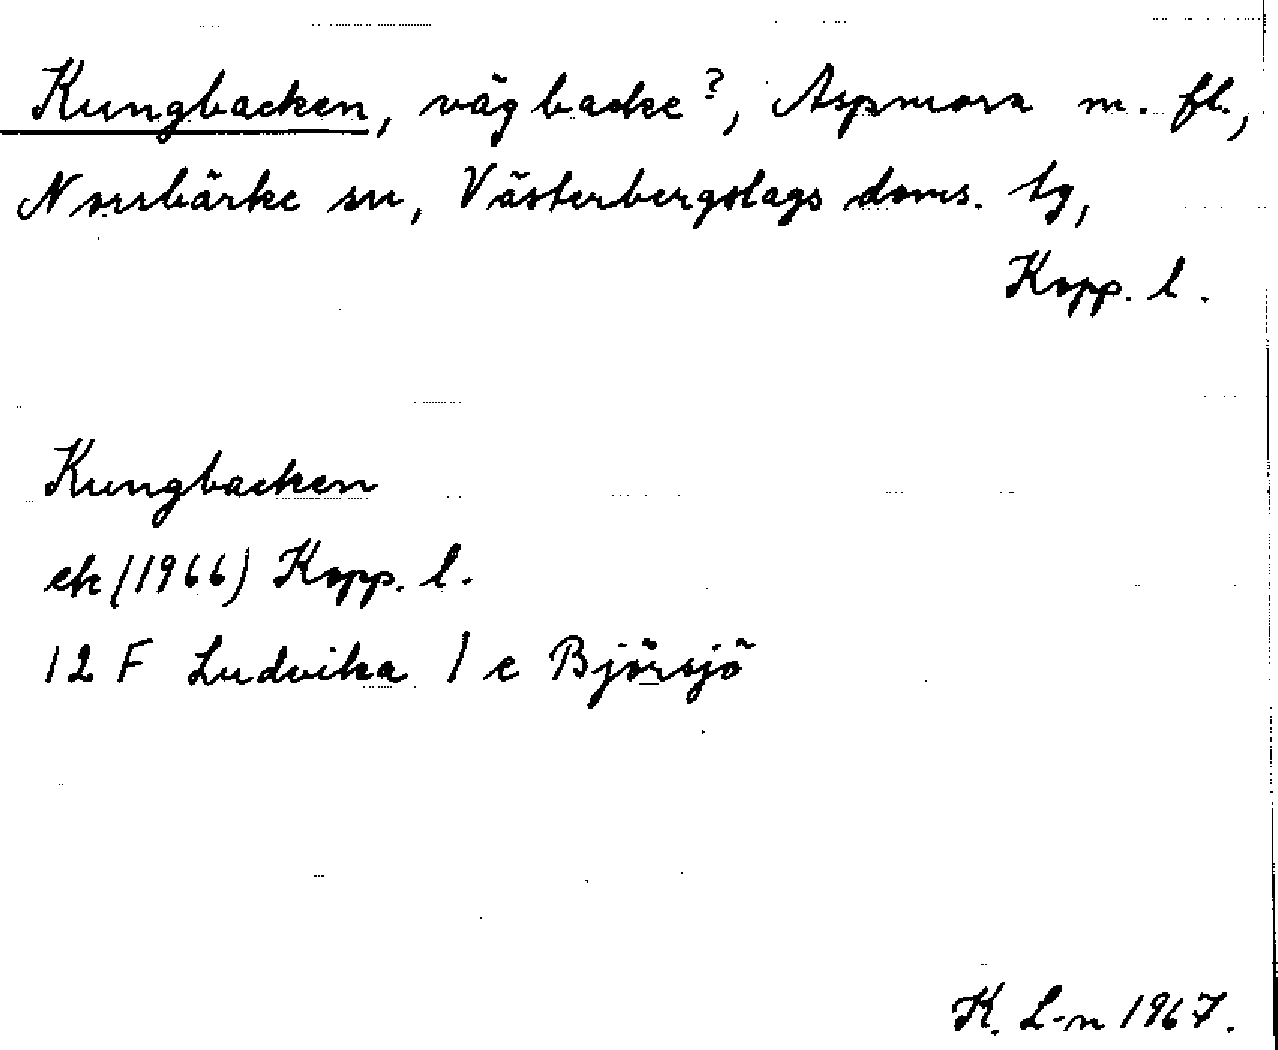 Kungbacken, vägbacke?, Aspmora m. fl.,
Norrbärke sn, Västerbergslags doms. tg,
Kopp. l.
Kungbacken
ek (1966) Kopp. l.
12 F Ludvika 1 e Björsjö
K. L-n 1967.